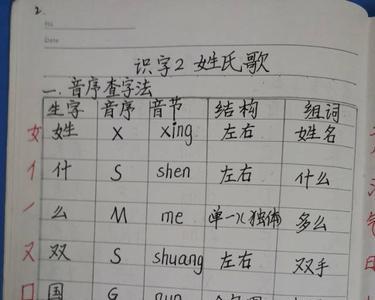 2.
No
Date
识字2 姓氏歌
一.音序查字法
生字 音序 音节 结构 组词
女 姓 X xing 左右 姓名
亻 什 S shen 左右 什么
一 么 M me 独体 多么
又 双 S shuang 左右 双手
口 国 G